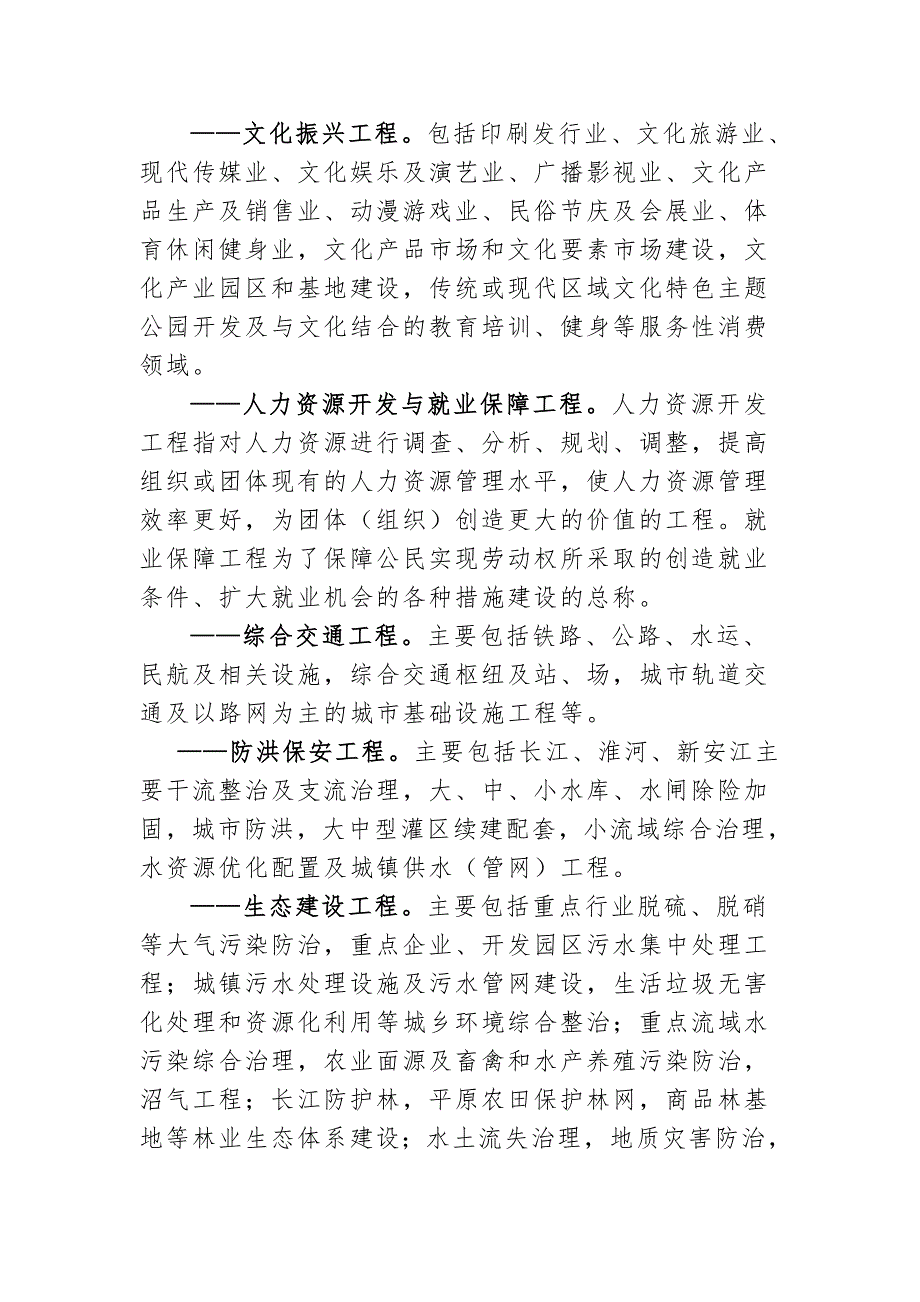 ——文化振兴工程。包括印刷发行业、文化旅游业、
现代传媒业、文化娱乐及演艺业、广播影视业、文化产
品生产及销售业、动漫游戏业、民俗节庆及会展业、体
育休闲健身业，文化产品市场和文化要素市场建设，文
化产业园区和基地建设，传统或现代区域文化特色主题
公园开发及与文化结合的教育培训、健身等服务性消费
领域。
——人力资源开发与就业保障工程。人力资源开发
工程指对人力资源进行调查、分析、规划、调整，提高
组织或团体现有的人力资源管理水平，使人力资源管理
效率更好，为团体（组织）创造更大的价值的工程。就
业保障工程为了保障公民实现劳动权所采取的创造就业
条件、扩大就业机会的各种措施建设的总称。
——综合交通工程。主要包括铁路、公路、水运、
民航及相关设施，综合交通枢纽及站、场，城市轨道交
通及以路网为主的城市基础设施工程等。
——防洪保安工程。主要包括长江、淮河、新安江主
要干流整治及支流治理，大、中、小水库、水闸除险加
固，城市防洪，大中型灌区续建配套，小流域综合治理，
水资源优化配置及城镇供水（管网）工程。
——生态建设工程。主要包括重点行业脱硫、脱硝
等大气污染防治，重点企业、开发园区污水集中处理工
程；城镇污水处理设施及污水管网建设，生活垃圾无害
化处理和资源化利用等城乡环境综合整治；重点流域水
污染综合治理，农业面源及畜禽和水产养殖污染防治，
沼气工程；长江防护林，平原农田保护林网，商品林基
地等林业生态体系建设；水土流失治理，地质灾害防治，